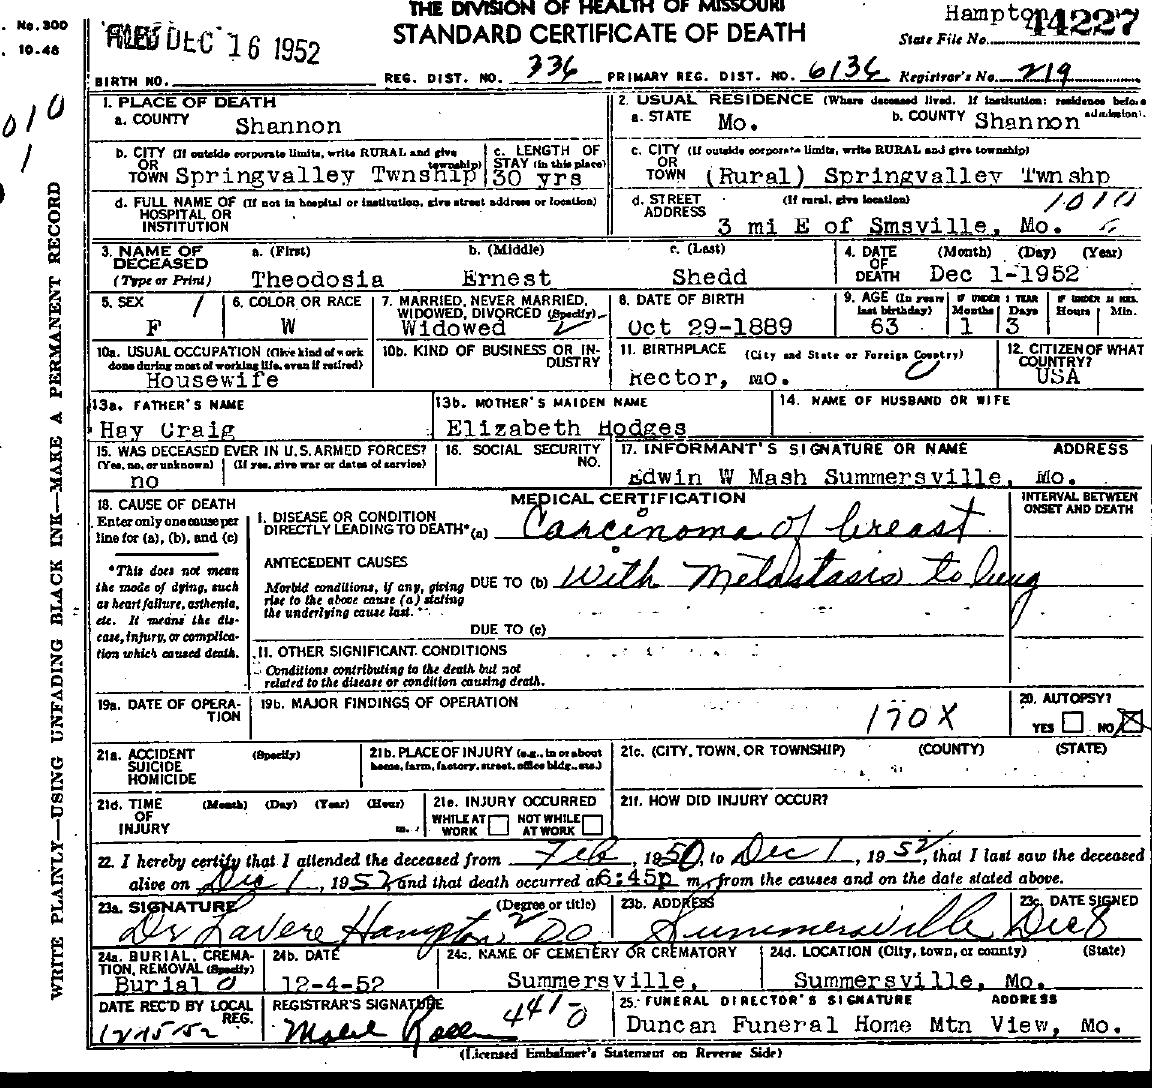 THE DIVISION OF HEALTH OF MISSOURI
Hampton 44227
No. 300
10.48
FILED DEC 16 1952
STANDARD CERTIFICATE OF DEATH
State File No.
BIRTH NO. REG. DIST. NO. 336 PRIMARY REG. DIST. NO. 6136 Registrar's No. 219
010
1
1. PLACE OF DEATH
a. COUNTY Shannon
2. USUAL RESIDENCE (Where deceased lived. If institution: residence before admission).
a. STATE Mo. b. COUNTY Shannon
b. CITY (If outside corporate limits, write RURAL and give township)
OR
TOWN Springvalley Twnship
c. LENGTH OF STAY (in this place)
30 yrs
c. CITY (If outside corporate limits, write RURAL and give township)
OR
TOWN (Rural) Springvalley Twnshp
d. FULL NAME OF (If not in hospital or institution, give street address or location)
HOSPITAL OR
INSTITUTION
d. STREET (If rural, give location)
ADDRESS
1010
3 mi E of Smsville, Mo.
3. NAME OF DECEASED
(Type or Print)
a. (First) b. (Middle) c. (Last)
Theodosia Ernest Shedd
4. DATE OF DEATH (Month) (Day) (Year)
Dec 1-1952
5. SEX
F
6. COLOR OR RACE
W
7. MARRIED, NEVER MARRIED, WIDOWED, DIVORCED (Specify)
Widowed 2
8. DATE OF BIRTH
Oct 29-1889
9. AGE (In years last birthday)
63
IF UNDER 1 YEAR
Months Days
1 3
IF UNDER 24 HRS.
Hours Min.
10a. USUAL OCCUPATION (Give kind of work done during most of working life, even if retired)
Housewife
10b. KIND OF BUSINESS OR INDUSTRY
11. BIRTHPLACE (City and State or Foreign Country)
Rector, Mo. 0
12. CITIZEN OF WHAT COUNTRY?
USA
13a. FATHER'S NAME
Hay Craig
13b. MOTHER'S MAIDEN NAME
Elizabeth Hodges
14. NAME OF HUSBAND OR WIFE
15. WAS DECEASED EVER IN U.S. ARMED FORCES?
(Yes, no, or unknown) (If yes, give war or dates of service)
no
16. SOCIAL SECURITY NO.
17. INFORMANT'S SIGNATURE OR NAME ADDRESS
Edwin W Mash Summersville, Mo.
18. CAUSE OF DEATH
Enter only one cause per line for (a), (b), and (c)
*This does not mean the mode of dying, such as heart failure, asthenia, etc. It means the disease, injury, or complication which caused death.
MEDICAL CERTIFICATION
INTERVAL BETWEEN ONSET AND DEATH
I. DISEASE OR CONDITION DIRECTLY LEADING TO DEATH* (a) Carcinoma of breast
ANTECEDENT CAUSES
Morbid conditions, if any, giving rise to the above cause (a) stating the underlying cause last.
DUE TO (b) with metastasis to lung
DUE TO (c)
II. OTHER SIGNIFICANT CONDITIONS
Conditions contributing to the death but not related to the disease or condition causing death.
19a. DATE OF OPERATION
19b. MAJOR FINDINGS OF OPERATION
170X
20. AUTOPSY?
YES NO
21a. ACCIDENT (Specify)
SUICIDE
HOMICIDE
21b. PLACE OF INJURY (e.g., in or about home, farm, factory, street, office bldg., etc.)
21c. (CITY, TOWN, OR TOWNSHIP) (COUNTY) (STATE)
21d. TIME OF INJURY (Month) (Day) (Year) (Hour) m.
21e. INJURY OCCURRED
WHILE AT WORK NOT WHILE AT WORK
21f. HOW DID INJURY OCCUR?
22. I hereby certify that I attended the deceased from Feb, 1950, to Dec 1, 1952, that I last saw the deceased
alive on Dec 1, 1952 and that death occurred at 6:45p m., from the causes and on the date stated above.
23a. SIGNATURE (Degree or title)
Dr LaVere Hampton DO
23b. ADDRESS
Summersville
23c. DATE SIGNED
Dec 8
24a. BURIAL, CREMATION, REMOVAL (Specify)
Burial 0
24b. DATE
12-4-52
24c. NAME OF CEMETERY OR CREMATORY
Summersville,
24d. LOCATION (City, town, or county) (State)
Summersville, Mo.
DATE REC'D BY LOCAL REG.
12-15-52
REGISTRAR'S SIGNATURE
4410
25. FUNERAL DIRECTOR'S SIGNATURE ADDRESS
Duncan Funeral Home Mtn View, Mo.
(Licensed Embalmer's Statement on Reverse Side)
WRITE PLAINLY—USING UNFADING BLACK INK—MAKE A PERMANENT RECORD